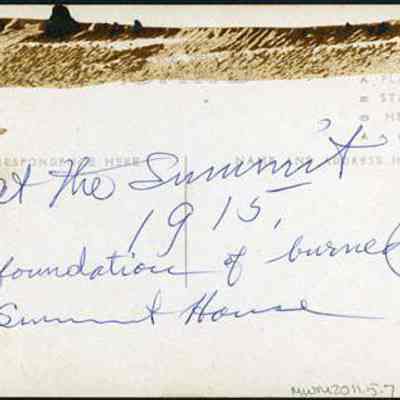 A PL
STA
NE
RESPONDENCE HERE NAME AND ADDRESS H
at the Summit
1915,
foundation of burned
Summit House
MWM2011.5.7